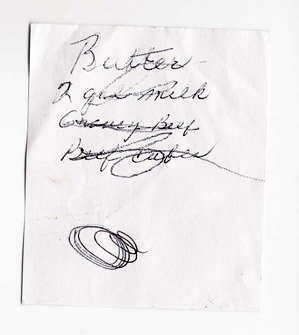 Butter
2 gal milk
Gravy Beef
Beef Cubes